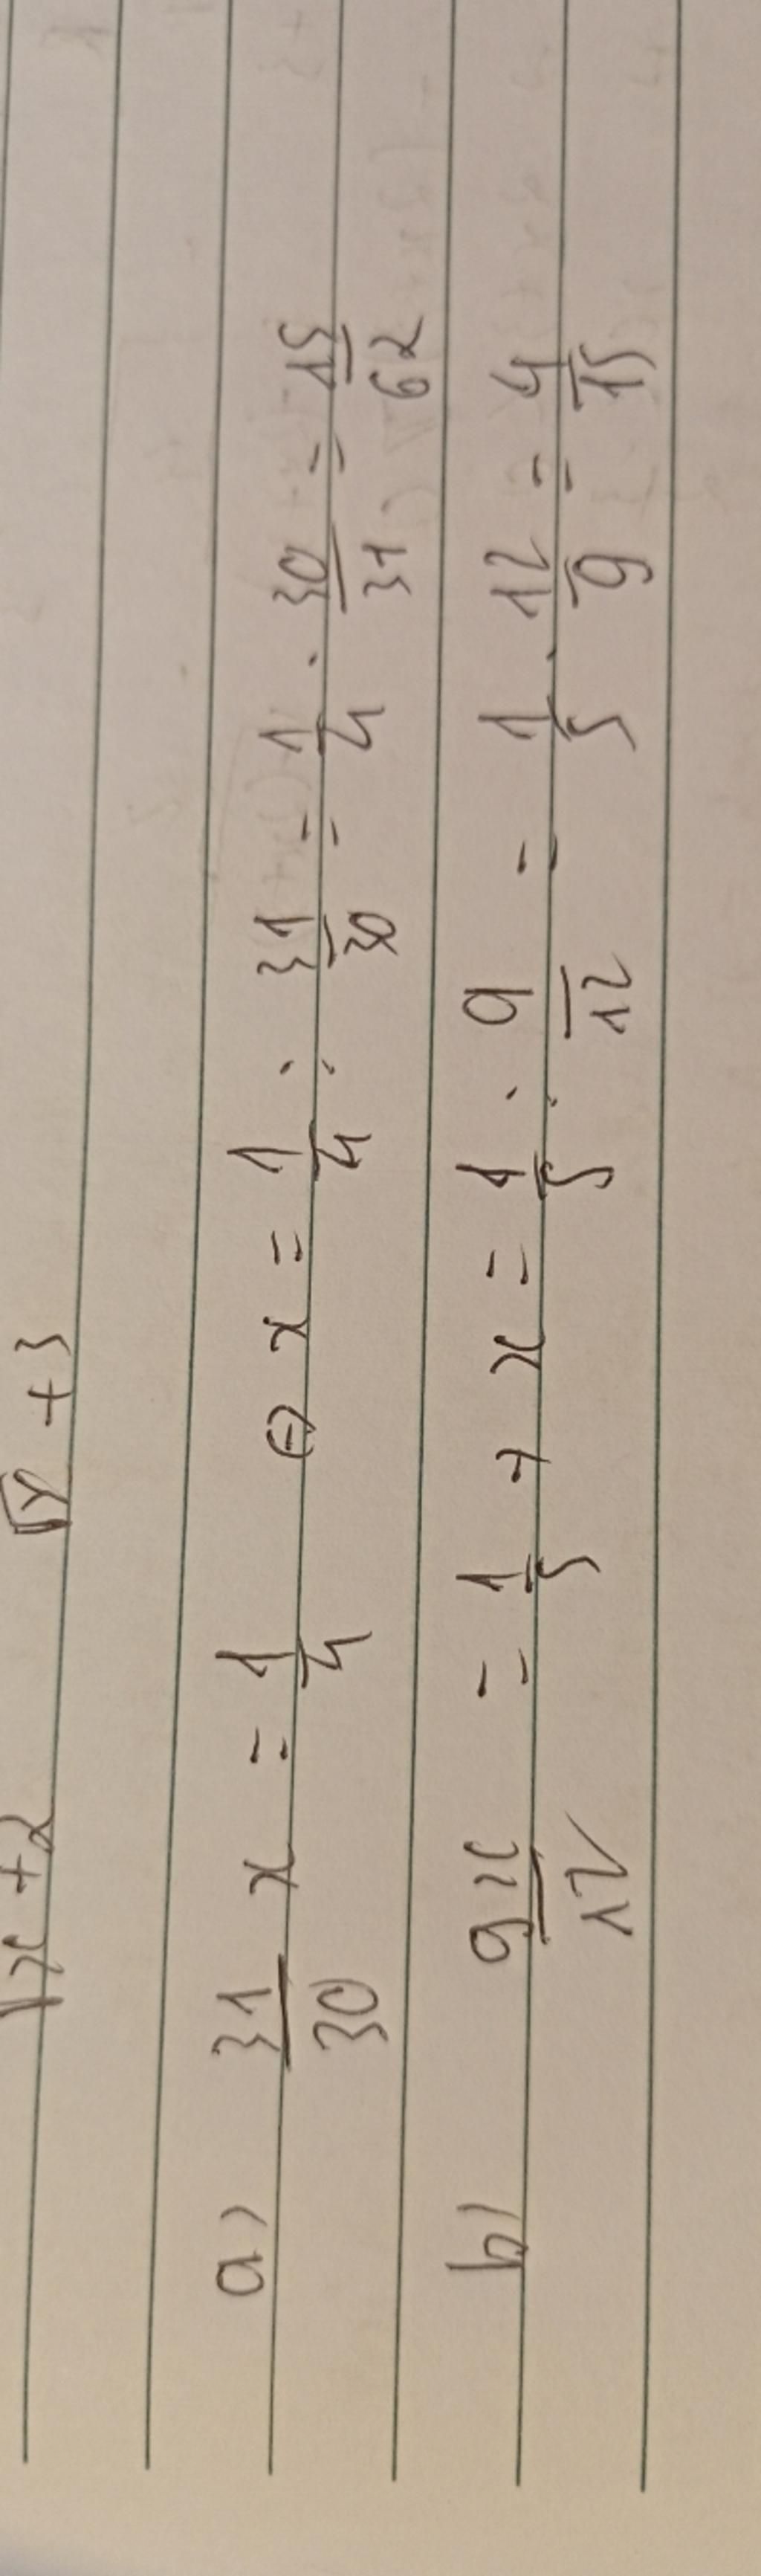 √x + 2 √y + 3
a) 31/30 x = 1/4 ⊖ x = 1/4 : 31/30 = 1/4 . 30/31 = 15/62
b) 9x/12 = 1/5 + x = 1/5 : 9/12 = 1/5 . 12/9 = 4/15